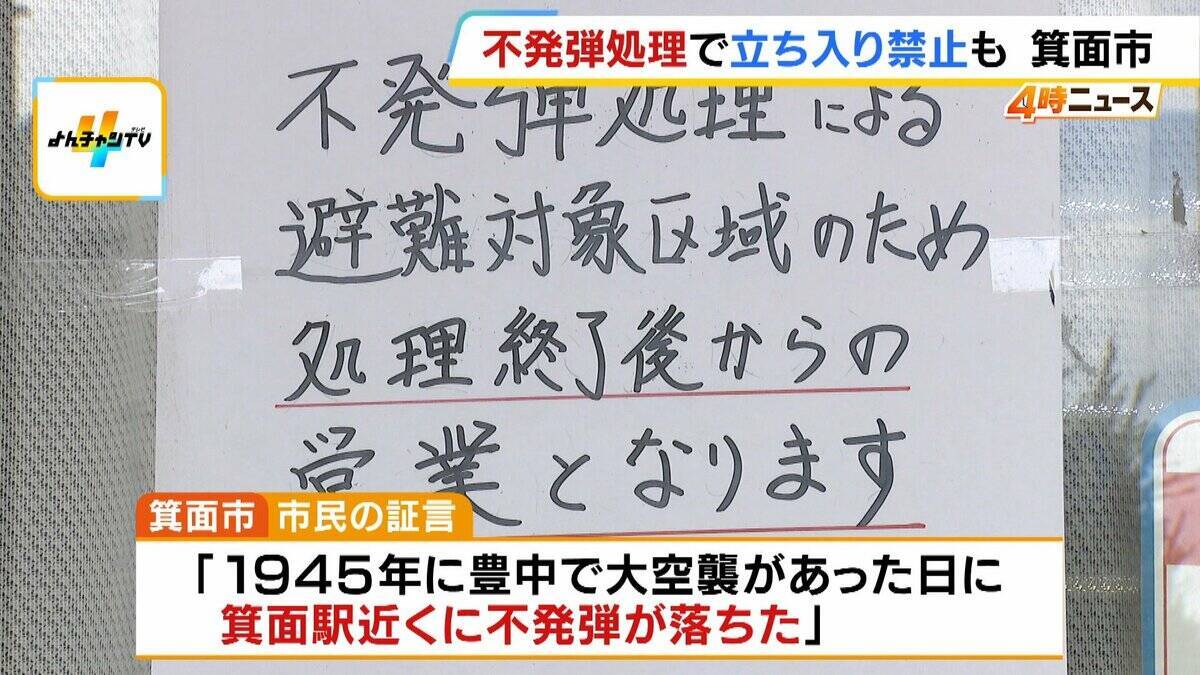 不発弾処理で立ち入り禁止も 箕面市
4時ニュース
よんチャンTV
テレビ
不発弾処理による
避難対象区域のため
処理終了後からの
営業となります
箕面市 市民の証言
「1945年に豊中で大空襲があった日に
箕面駅近くに不発弾が落ちた」